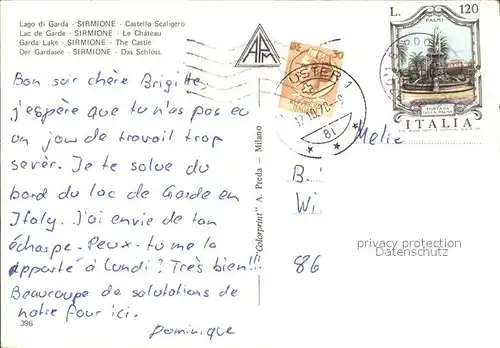 Lago di Garda - SIRMIONE - Castello Scaligero
Lac de Garde - SIRMIONE - Le Château
Garda Lake - SIRMIONE - The Castle
Der Gardasee - SIRMIONE - Das Schloss
Bon soir chère Brigitte,
j'espère que tu n'as pas eu
un jour de travail trop
sevèr. Je te salue du
bord du lac de Garde en
Italy. J'ai envie de ton
écharpe. Peux-tu me la
apporté à Lundi? Très bien!!!
Beaucoupe de salutations de
notre four ici.
Dominique
396
"Colorprint" A. Preda - Milano
LIRE 50
USTER 1
8
L. 120
PALMI
FONTANA
DELLA PALMA
ITALIA
Melie
B.
Wi
86
privacy protection
Datenschutz